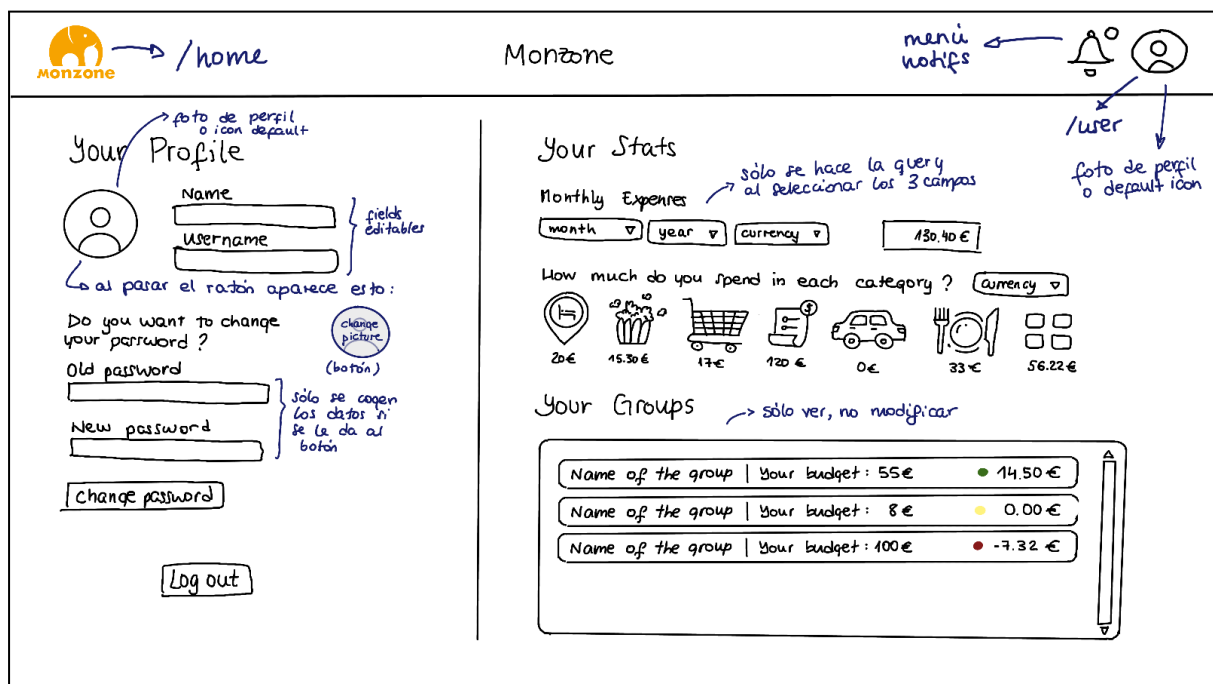 MONZONE
/home
Monzone
menú
notifs
/user
foto de perfil
o default icon
foto de perfil
o icon default
Your Profile
Name
username
fields
editables
al pasar el ratón aparece esto:
change
picture
(botón)
Do you want to change
your password ?
Old password
New password
sólo se cogen
los datos si
se le da al
botón
Change password
Log out
Your Stats
sólo se hace la query
al seleccionar los 3 campos
Monthly Expenses
month
year
currency
130.40 €
How much do you spend in each category ?
currency
$
20€
15.30€
17€
120 €
0€
33€
56.22€
Your Groups
sólo ver, no modificar
Name of the group | Your budget: 55€ 14.50 €
Name of the group | Your budget: 8€ 0.00 €
Name of the group | Your budget: 100€ -7.32 €